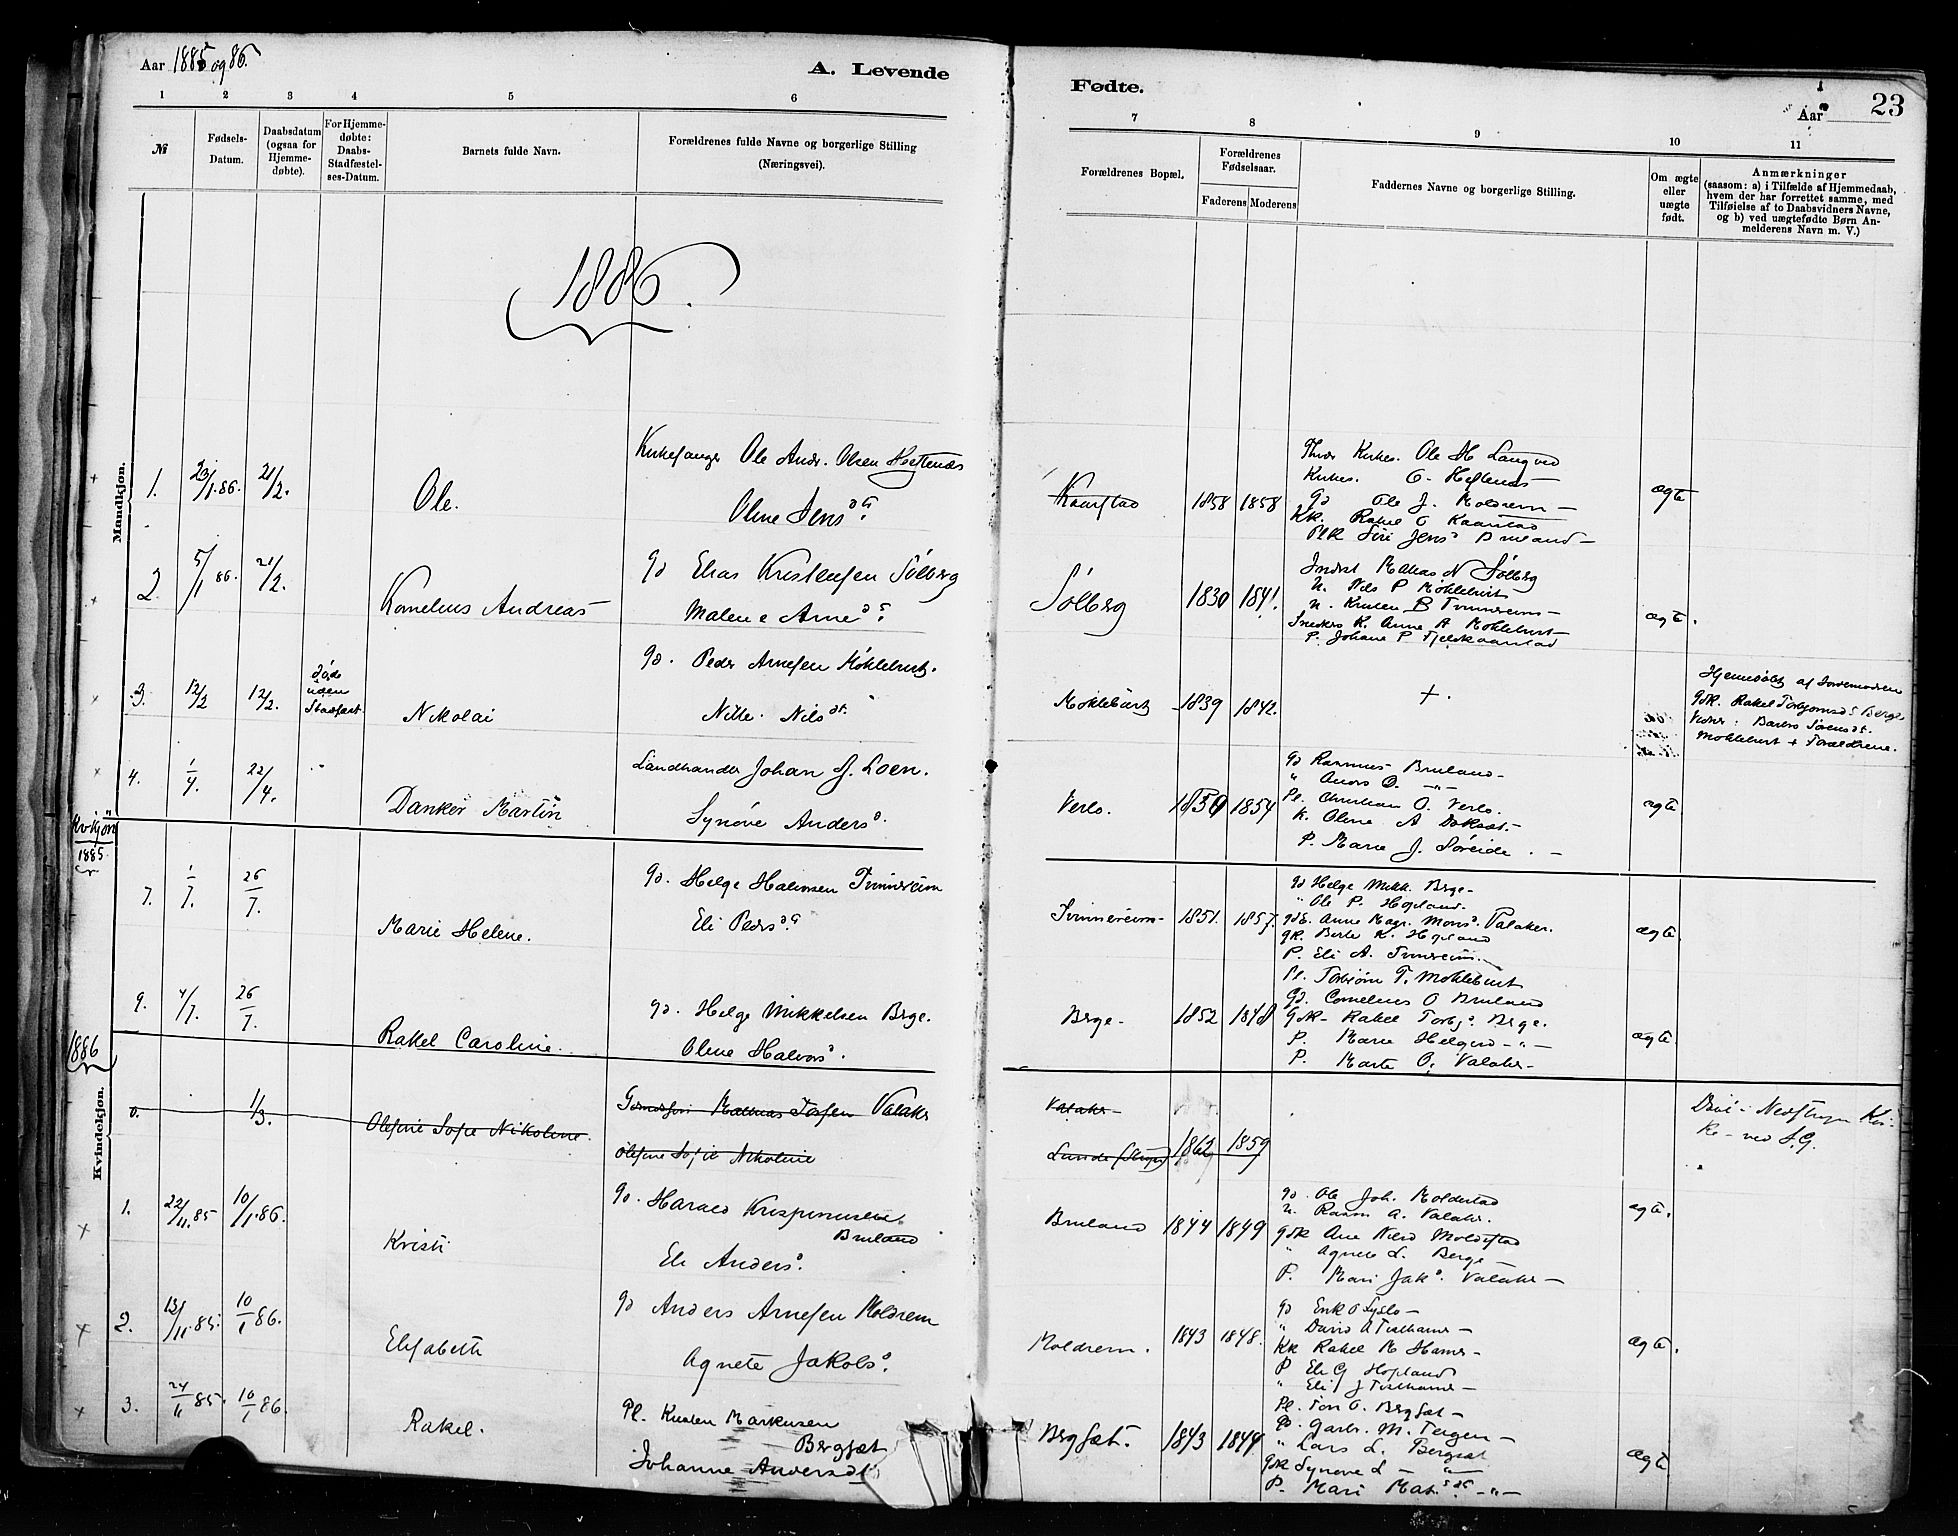 Aar 1885 og 86.
A. Levende
Fødte.
Aar
23
1 2 3 4 5 6 7 8 9 10 11
№
Fødsels-Datum.
Daabsdatum (ogsaa for Hjemme-døbte).
For Hjemme-døbte: Daabs-Stadfæstel-ses-Datum.
Barnets fulde Navn.
Forældrenes fulde Navne og borgerlige Stilling
(Næringsvei).
Forældrenes Bopæl.
Forældrenes Fødselsaar.
Faderens Moderens
Faddernes Navne og borgerlige Stilling.
Om ægte eller uægte født.
Anmærkninger
(saasom: a) i Tilfælde af Hjemmedaab,
hvem der har forrettet samme, med
Tilføielse af to Daabsvidners Navne,
og b) ved uægtefødte Børn An-
melderens Navn m. V.)
1886.
Mandkjøn.
1. 23/1. 86. 21/2. Ole.
Kirkesanger Ole Andr. Olsen Heftenæs
Oline Jensdt.
Kaarstad 1858 1858
Kirkes. Ole M Langved
Kirkes. O. Heftenæs
Gd Ole J. Moldrem —
KK. Rakel O Kaarstad
Plk Siri Jensd Bruland —
ægte
2. 5/1 86. 21/2. Kornelius Andreas
Gd Elias Kristensen Sølberg
Malene Arnedt.
Sølberg 1830 1841.
Mathias N Sølberg
U. Nils P Moklebust
U. Kristen B Tvinnereim —
K. Anne A Moklebust —
P. Johane P Fjelskaarstad
ægte.
3. 12/2 12/2. død uden Stadfæst Nikolai
Gd. Peder Arnesen Moklebust.
Nille. Nilsdt.
Moklebust 1839 1842.
+.
Hjemmedøbt af Jordemoderen
Gdk. Rakel Torbjornsd Berge
Vidner: Barbro Sørensdt.
Moklebust + Forældrene.
4. 1/4. 22/4. " Danker Martin
Landhandler Johan J. Loen.
Synøve Andersd.
Verlo. 1850 1854
Gd Rasmus Bruland —
" Anders O. — " —
Pl. Christian O. Verlo.
K. Oline A
P. Marie J. Søreide. —
ægte
Kvkjøn
1885
7. 1/7. 26/7. Marie Helene.
Gd. Helge Halvorsen Tvinnereim
Eli Pedersdt.
Tvinnereim — 1851. 1857.
Gd Helge Mikk. Berge —
" Ole P. Hopland.
Anne Magr. Monsd. Valaker.
Gk. Berte K. Hopland
P. Eli A. Tvinnereim. —
ægte.
9. 4/7. 26/7. Rakel Caroline.
Gd. Helge Mikkelsen Berge.
Oline Halvorsd.
Berge. 1852 1848
Pl. Torbjørn T. Moklebust
Gd. Cornelius O Bruland
Gdk — Rakel Torbj. Berge.
P. Marie Helgesd — " —
P. Marte O. Valaker —
ægte.
1886
Kvindekjøn.
0. 1/3. Olefine Sofie Nikoline.
Mathias Josefsen Valaker
Olefine Sofie Nikoline
Valaker —
Lunde (Stryn) 1862 1859
Døbt i Nedstryn Kir-
ke — ved S.G.
1. 22/11. 85 10/1. 86. Kristi
Gd. Harald Krispinussen
Bruland
Eli Andersd.
Bruland 1844 1849
Gd. Ole Joh. Moldestad
U. Rasm A. Valaker.
Gdk Ane Nilsd Moldestad
" Agnete L. Berge —
P. Mari Jakd. Valaker —
ægte.
2. 13/11. 85. 10/1 86. Elisabeth
Gd Anders Arnesen Moldrem
Agnete Jakobsd.
Moldrem. 1843 1848.
Gd Erik O Lyslo —
" David A Fosshamer —
KK Rakel M Hamre —
P Eli G Hopland
" Eli J Fosshamer —
ægte.
3. 24/11 85. 10/1 86. Rakel.
Pl. Kristen Markusen
Bergsæt
Johanne Andersdt
Bergsæt. 1843 1844
Pl. Jon O. Bergsæt —
Gd. Garbr. M. Tergen —
" Lars L. Bergsæt
Gdk Synøve L — " —
P. Mari Mat.sdt — " —
ægte